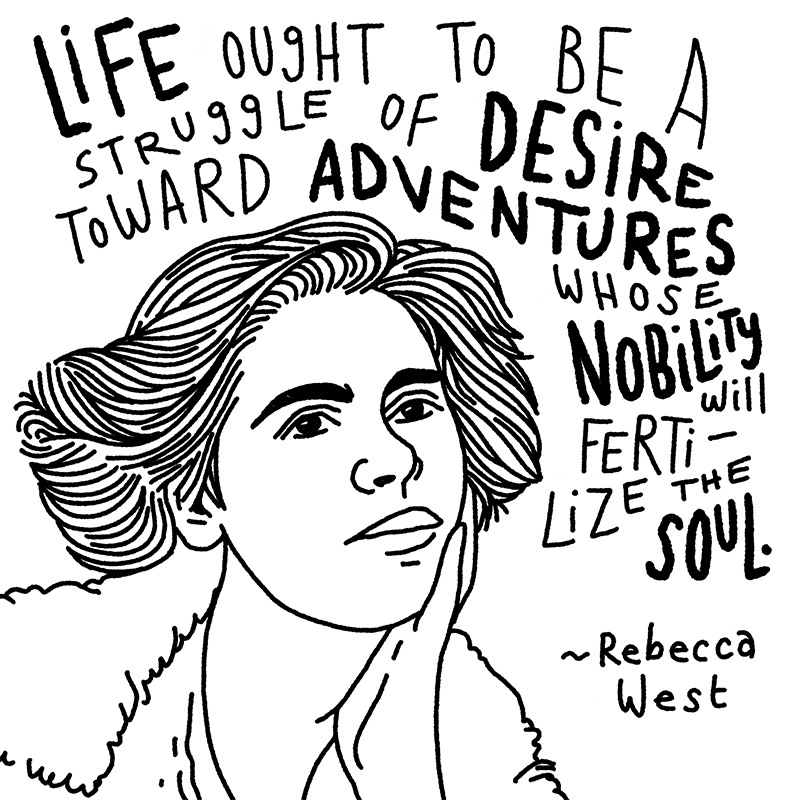 LiFE OUGHT TO BE A
STRUGGLE OF DESiRE
ToWARD ADVENTURES
WHOSE
NOBiLiTY
will
FERTi-
LiZE THE
SOUL.
~Rebecca
West